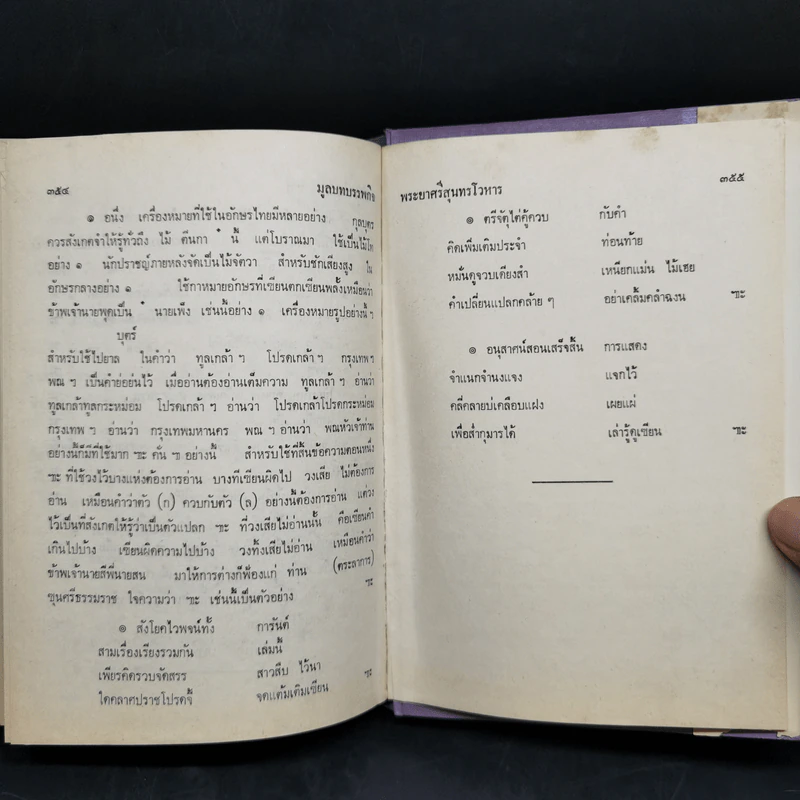 ๓๕๔ มูลบทบรรพกิจ
๏ อนึ่ง เครื่องหมายที่ใช้ในอักษรไทยมีหลายอย่าง กุลบุตร
ควรสังเกตจำให้รู้ทั่วถึง ไม้ ตีนกา ๋ นี้ แต่โบราณมา ใช้เป็นไม้โท
อย่าง ๑ นักปราชญ์ภายหลังจัดเป็นไม้จัตวา สำหรับชักเสียงสูง ใน
อักษรกลางอย่าง ๑ ใช้กาหมายอักษรที่เขียนตกเขียนพลั้งเหมือนว่า
ข้าพเจ้านายพุดเป็น ๋ นายเพ็ง เช่นนี้อย่าง ๑ เครื่องหมายรูปอย่างนี้ ฯ
บุตร์
สำหรับใช้ไปยาล ในคำว่า ทูลเกล้า ฯ โปรดเกล้า ฯ กรุงเทพ ฯ
พณ ฯ เป็นคำย่อย่นไว้ เมื่ออ่านต้องอ่านเต็มความ ทูลเกล้า ฯ อ่านว่า
ทูลเกล้าทูลกระหม่อม โปรดเกล้า ฯ อ่านว่า โปรดเกล้าโปรดกระหม่อม
กรุงเทพ ฯ อ่านว่า กรุงเทพมหานคร พณ ฯ อ่านว่า พณหัวเจ้าท่าน
อย่างนี้ก็มีที่ใช้มาก ฯะ คั่น ฯ อย่างนี้ สำหรับใช้ที่สิ้นข้อความตอนหนึ่ง
ฯะ ที่ใช้วงไว้บางแห่งต้องการอ่าน บางทีเขียนผิดไป วงเสีย ไม่ต้องการ
อ่าน เหมือนคำว่าตัว (ก) ควบกับตัว (ล) อย่างนี้ต้องการอ่าน แต่วง
ไว้เป็นที่สังเกตให้รู้ว่าเป็นตัวแปลก ฯะ ที่วงเสียไม่อ่านนั้น คือเขียนคำ
เกินไปบ้าง เขียนผิดความไปบ้าง วงทิ้งเสียไม่อ่าน เหมือนคำว่า
ข้าพเจ้านายสีพี่นายสน มาให้การต่างก็ฟ้องแก่ ท่าน (ตระลาการ)
ขุนศรีธรรมราช ใจความว่า ฯะ เช่นนี้เป็นตัวอย่าง ฯะ
๏ สังโยคไวพจน์ทั้ง การันต์
สามเรื่องเรียงรวมกัน เล่มนี้
เพียรคิดรวบจัดสรร สาวสืบ ไว้นา
ใดคลาศปราชโปรดจี้ จดแต้มเติมเขียน ฯะ
พระยาศรีสุนทรโวหาร ๓๕๕
๏ ตรีจัตุไต่คู้ควบ กับคำ
คิดเพิ่มเติมประจำ ท่อนท้าย
หมั่นดูจวบเดียงสำ เหนียกแม่น ไม้เฮย
คำเปลี่ยนแปลกคล้าย ๆ อย่าเคลิ้มคลำฉงน ฯะ
๏ อนุสาศน์สอนเสร็จสิ้น การแสดง
จำแนกจำนงแจง แจกไว้
คลี่คลายบ่เคลือบแฝง เผยแผ่
เพื่อส่ำกุมารได้ เล่ารู้ดูเขียน ฯะ